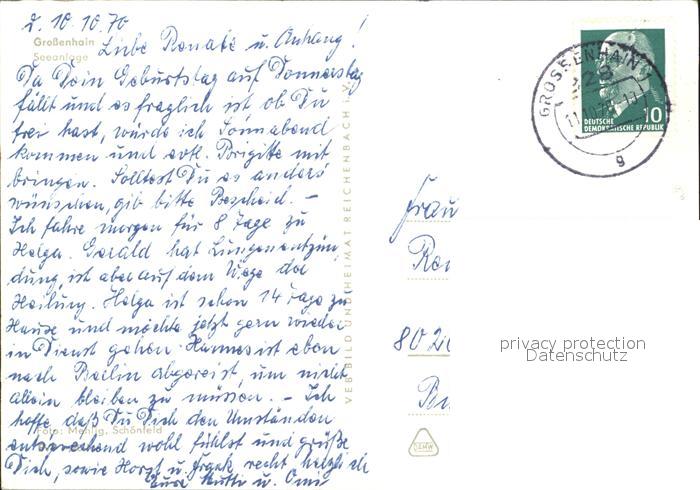 d. 10.10.70
Großenhain
Seeanlage
Liebe Renate u. Anhang!
Da Dein Geburtstag auf Donnerstag
fällt und es fraglich ist ob Du
frei hast, würde ich Sonnabend
kommen und evtl. Brigitte mit
bringen. Solltest Du es anders
wünschen, gib bitte Bescheid. –
Ich fahre morgen für 8 Tage zu
Helga. Gerald hat Lungenentzün
dung, ist aber auf dem Wege der
Heilung. Helga ist schon 14 Tage zu
Hause und möchte jetzt gern wieder
in Dienst gehen. Hannes ist eben
nach Berlin abgereist, um nicht
allein bleiben zu müssen. – Ich
hoffe, daß Du Dich den Umständen
Foto: Mehlig, Schönfeld
entsprechend wohl fühlst und grüße
Dich, sowie Horst u. Frank recht herzlich
Eure Mutti u. Omi
VEB BILD UND HEIMAT REICHENBACH i. V.
GROSSENHAIN
28
g
10
DEUTSCHE
DEMOKRATISCHE REPUBLIK
Frau
802
privacy protection
Datenschutz